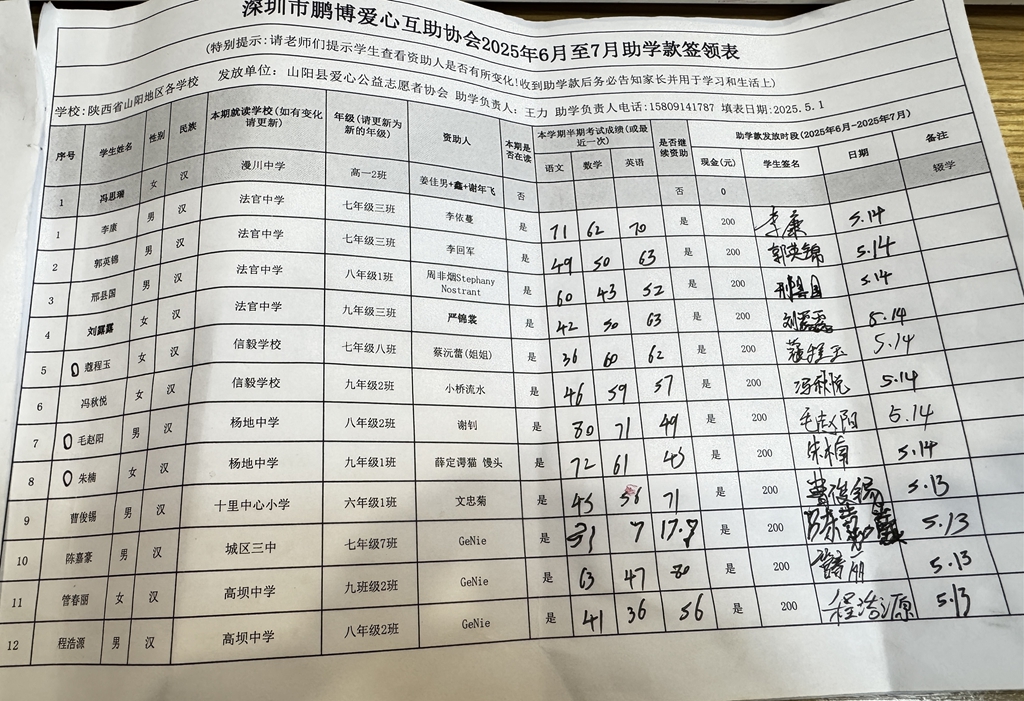 深圳市鹏博爱心互助协会2025年6月至7月助学款签领表
(特别提示:请老师们提示学生查看资助人是否有所变化!收到助学款后务必告知家长并用于学习和生活上)
学校:陕西省山阳地区各学校 发放单位: 山阳县爱心公益志愿者协会 助学负责人: 王力 助学负责人电话:15809141787 填表日期:2025.5.1
序号 学生姓名 性别 民族 本期就读学校(如有变化请更新) 年级(请更新为新的年级) 资助人 本期是否在读 本学期半期考试成绩(或最近一次) 语文 数学 英语 是否继续资助 助学款发放时段(2025年6月-2025年7月) 现金(元) 学生签名 日期 备注
1 冯思瑞 女 汉 漫川中学 高一2班 姜佳男+鑫+谢年飞 否 否 0 辍学
1 李康 男 汉 法官中学 七年级三班 李依蔓 是 71 62 70 是 200 李康 5.14
2 郭英锦 男 汉 法官中学 七年级三班 李回军 是 49 50 63 是 200 郭英锦 5.14
3 邢县国 男 汉 法官中学 八年级1班 周非烟Stephany Nostrant 是 60 43 52 是 200 邢县国 5.14
4 刘露露 女 汉 法官中学 九年级三班 严锦裳 是 42 50 63 是 200 刘露露 5.14
5 蔻程玉 女 汉 信毅中学 七年级八班 蔡沅蕾(姐姐) 是 36 60 62 是 200 蔻程玉 5.14
6 冯秋悦 女 汉 信毅学校 九年级2班 小桥流水 是 46 59 57 是 200 冯秋悦 5.14
7 毛赵阳 男 汉 杨地中学 八年级2班 谢钊 是 80 71 49 是 200 毛赵阳 5.14
8 朱楠 女 汉 杨地中学 九年级1班 薛定谔猫 馒头 是 72 61 43 是 200 朱楠 5.14
9 曹俊锡 男 汉 十里中心小学 六年级1班 文忠菊 是 45 56 71 是 200 曹俊锡 5.13
10 陈嘉豪 男 汉 城区三中 七年级7班 GeNie 是 31 7 17.7 是 200 5.13
11 管春丽 女 汉 高坝中学 九班级2班 GeNie 是 63 47 80 是 200 5.13
12 程浩源 男 汉 高坝中学 八年级2班 GeNie 是 41 36 56 是 200 程浩源 5.13